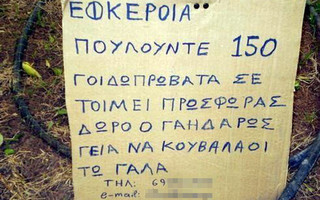 ΕΦΚΕΡΟΙΑ
ΠΟΥΛΟΥΝΤΕ 150
ΓΟΙΔΟΠΡΩΒΑΤΑ ΣΕ
ΤΟΙΜΕΙ ΠΡΟΣΦΩΡΑΣ
ΔΩΡΟ Ο ΓΑΗΔΑΡΟΣ
ΓΕΙΑ ΝΑ ΚΟΥΒΑΛΑΟΙ
ΤΩ ΓΑΛΑ
ΤΗΛ: 69
e-mail: